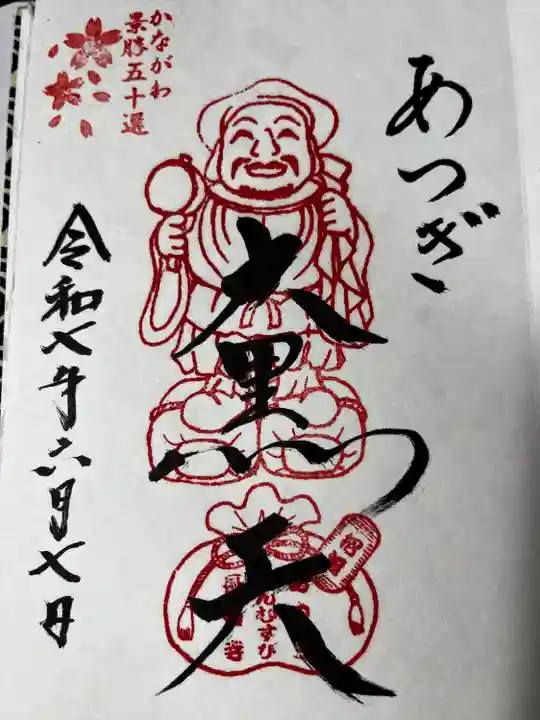 あつぎ
大黒天
かながわ
景勝五十選
令和七年六月七日
んむすび